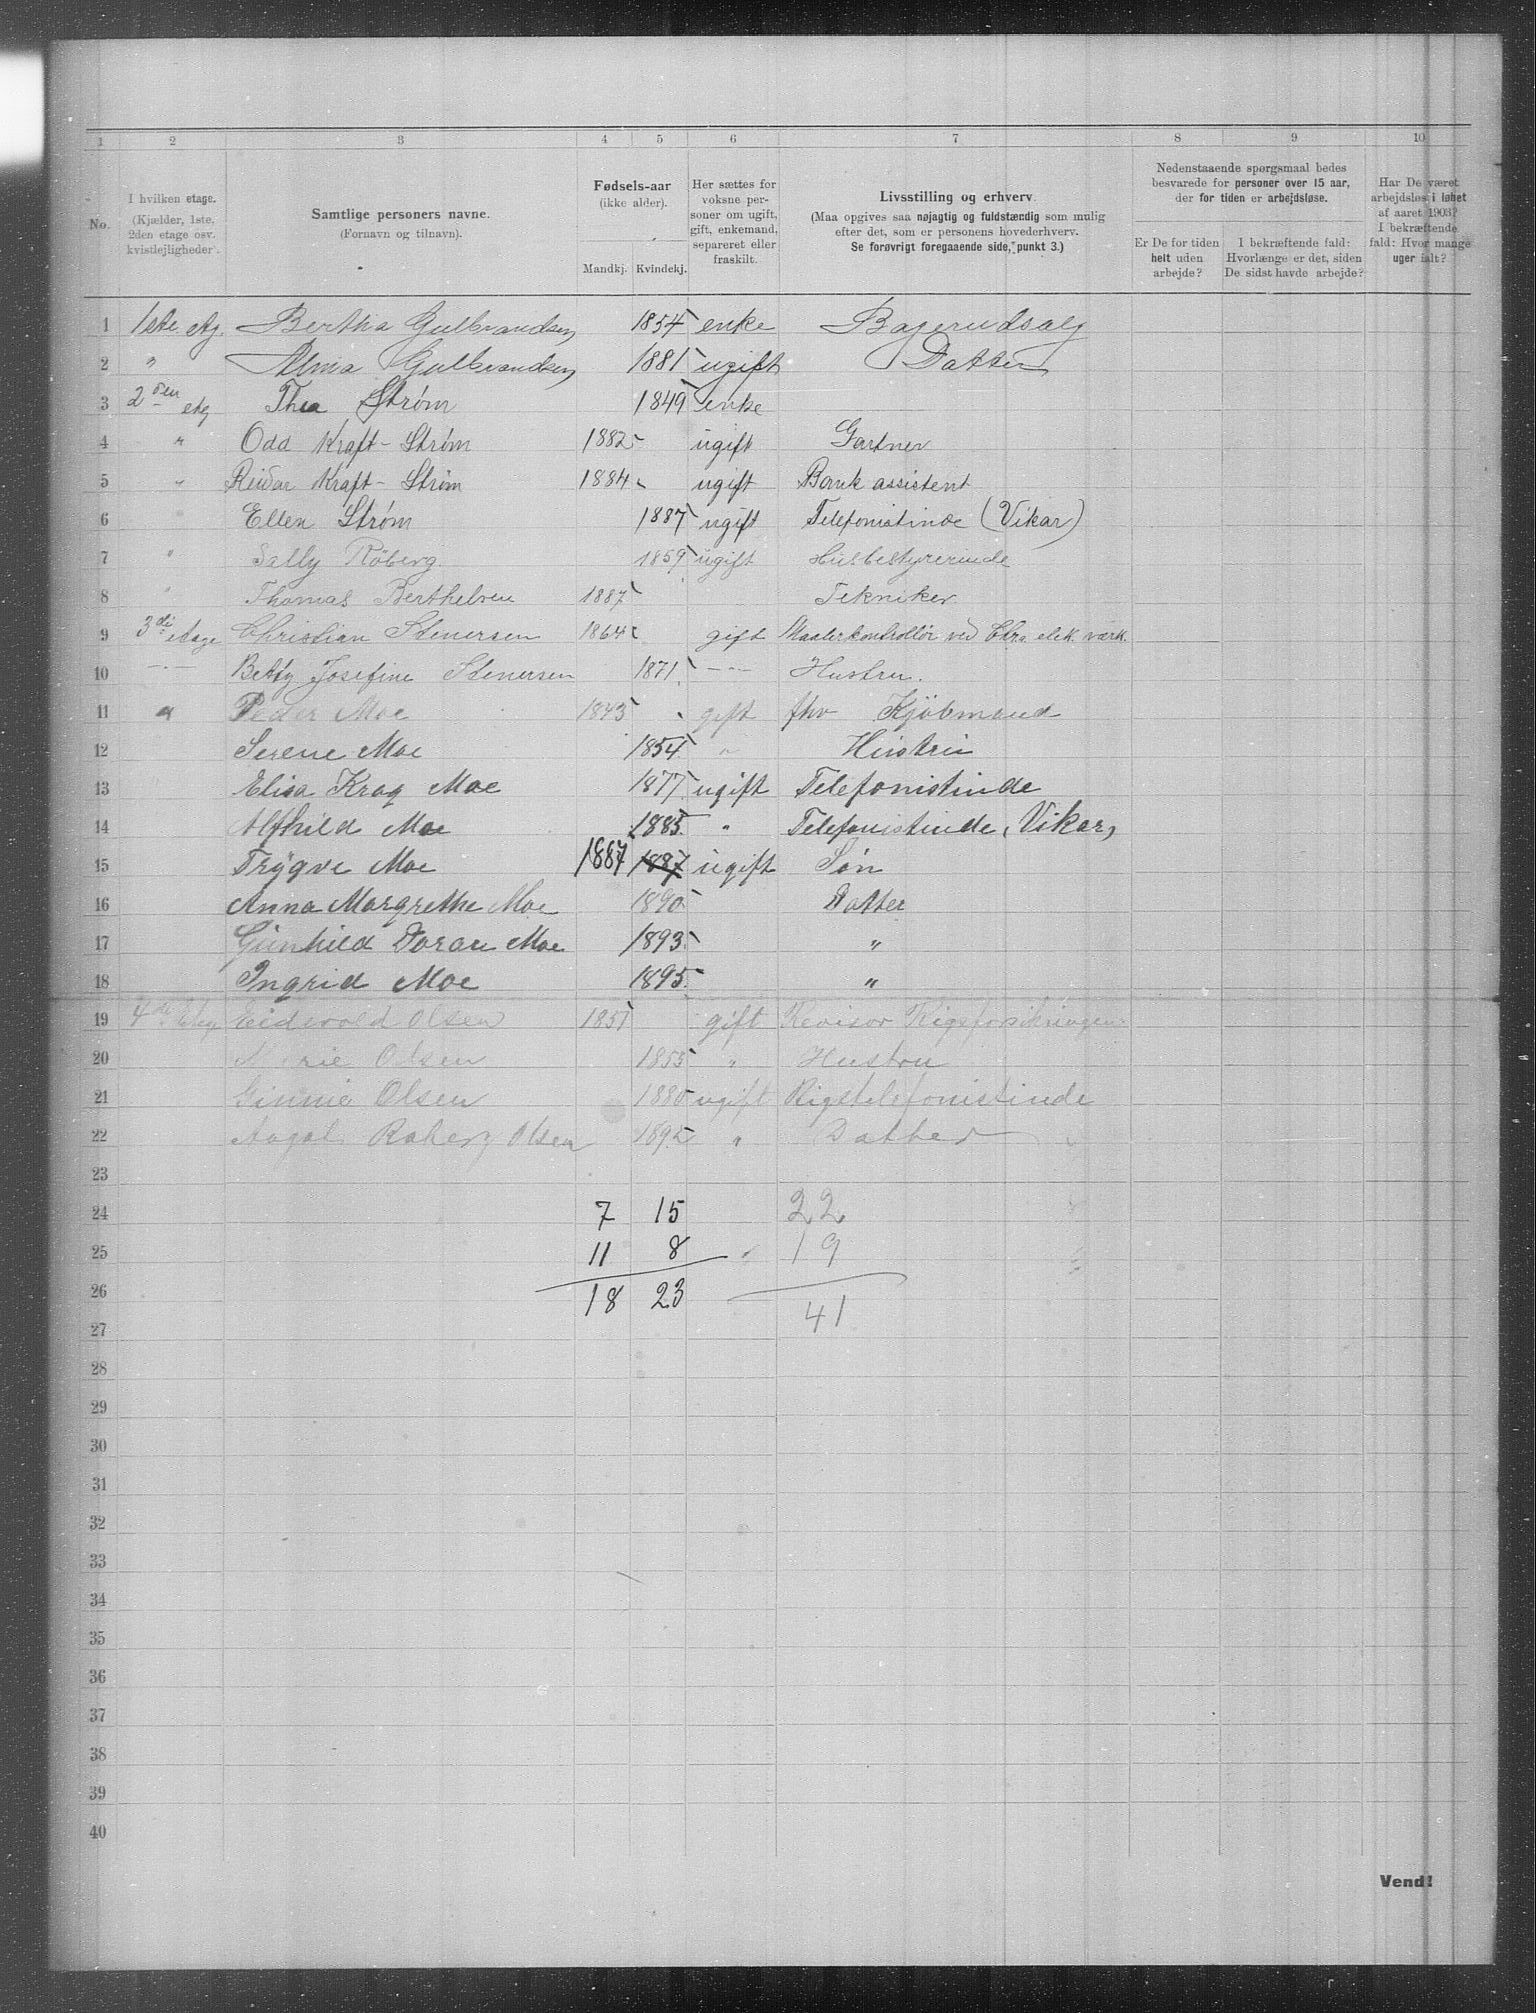 1 2 3 4 5 6 7 8 9 10
No.
I hvilken etage.
(Kjælder, 1ste,
2den etage osv.
kvistlejligheder).
Samtlige personers navne.
(Fornavn og tilnavn).
Fødsels-aar
(ikke alder).
Mandkj. Kvindekj.
Her sættes for
voksne per-
soner om ugift,
gift, enkemand,
separeret eller
fraskilt.
Livsstilling og erhverv.
(Maa opgives saa nøjagtig og fuldstændig som mulig
efter det, som er personens hovederhverv.
Se forøvrigt foregaaende side, punkt 3.)
Nedenstaaende spørgsmaal bedes
besvarede for personer over 15 aar,
der for tiden er arbejdsløse.
Er De for tiden
helt uden
arbejde?
I bekræftende fald:
Hvorlænge er det, siden
De sidst havde arbejde?
Har De været
arbejdsløs i løbet
af aaret 1903?
I bekræftende
fald: Hvor mange
uger ialt?
1 1ste etg. Bertha Gulbrandsen 1854 enke Bagerudsalg
2 " Alma Gulbrandsen 1881 ugift Datter
3 2den etg Thea Strøm 1849 enke
4 " Odd Kraft-Strøm 1882 ugift Gartner
5 " Reidar Kraft-Strøm 1884 ugift Bankassistent
6 " Ellen Strøm 1887 ugift Telefonistinde (Vikar)
7 " Sally Röberg. 1859 ugift Husbestyrerinde
8 " Thomas Berthelsen 1887 Tekniker
9 3die Etage Christian Stenersen 1864 gift Maalerkontrollør ved Chra elek. værk.
10 —"— Betsy Josefine Stenersen 1871 —"— Hustru.
11 " Peder Moe 1843 gift fhv Kjöbmand
12 Serene Moe 1854 " Hustru
13 Elisa Krag Moe 1877 ugift Telefonistinde
14 Alfhild Moe 1885 " Telefonistinde, Vikar,
15 Trygve Moe 1887 1887 ugift Søn
16 Anna Margrethe Moe 1890 Datter
17 Gunhild Doran Moe 1893 "
18 Ingrid Moe 1895 "
19 4de Etage Eidsvold Olsen 1851 gift Revisor Rigsforsikringen
20 Marie Olsen 1855 " Hustru
21 Ginnie Olsen 1880 ugift Rigstelefonistinde
22 Olsen 1892 " Datter
23
24 7 15 22
25 11 8 19
26 18 23
27 41
28
29
30
31
32
33
34
35
36
37
38
39
40
Vend!